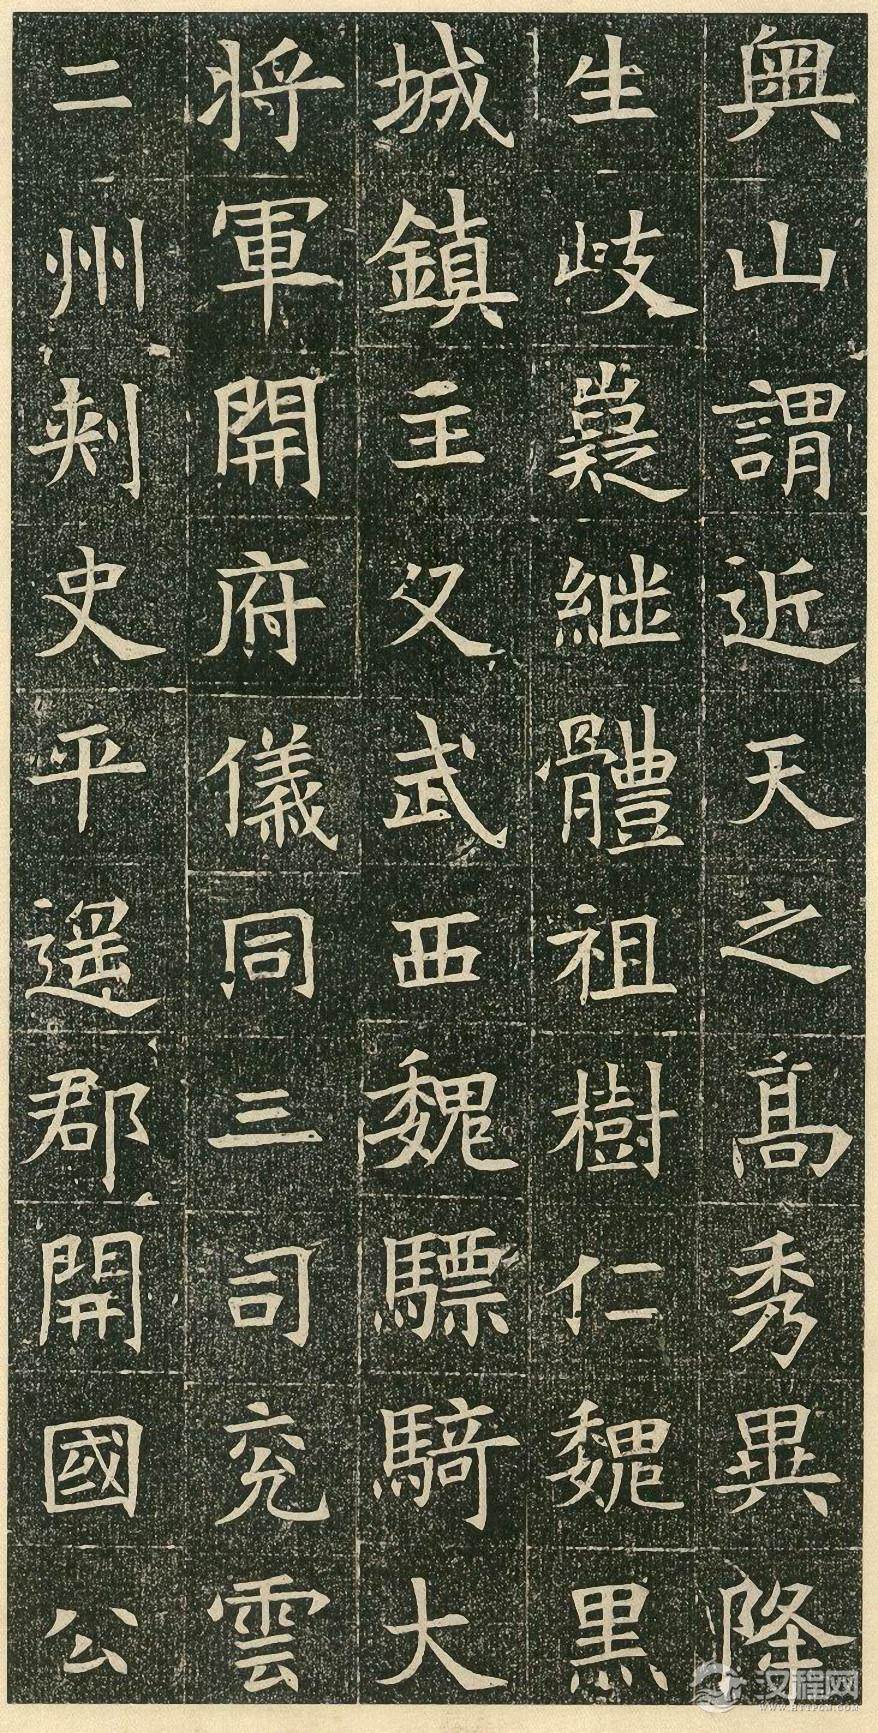 輿山謂近天之高秀異隆
生岐嶷繼體祖樹仁魏黑
城鎮主父武西魏驃騎大
將軍開府儀同三司兗雲
二州刺史平遥郡開國公
汉程网
WWW.HTTPCN.COM